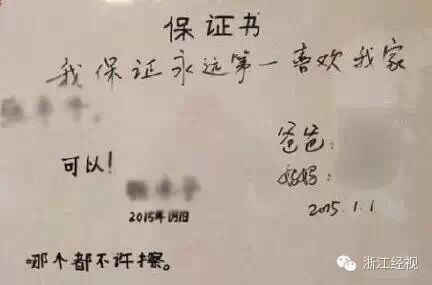 保证书
我保证永远第一喜欢我家
可以!
爸爸:
妈妈:
2015年1月1日
2015.1.1
哪个都不许擦。
浙江经视